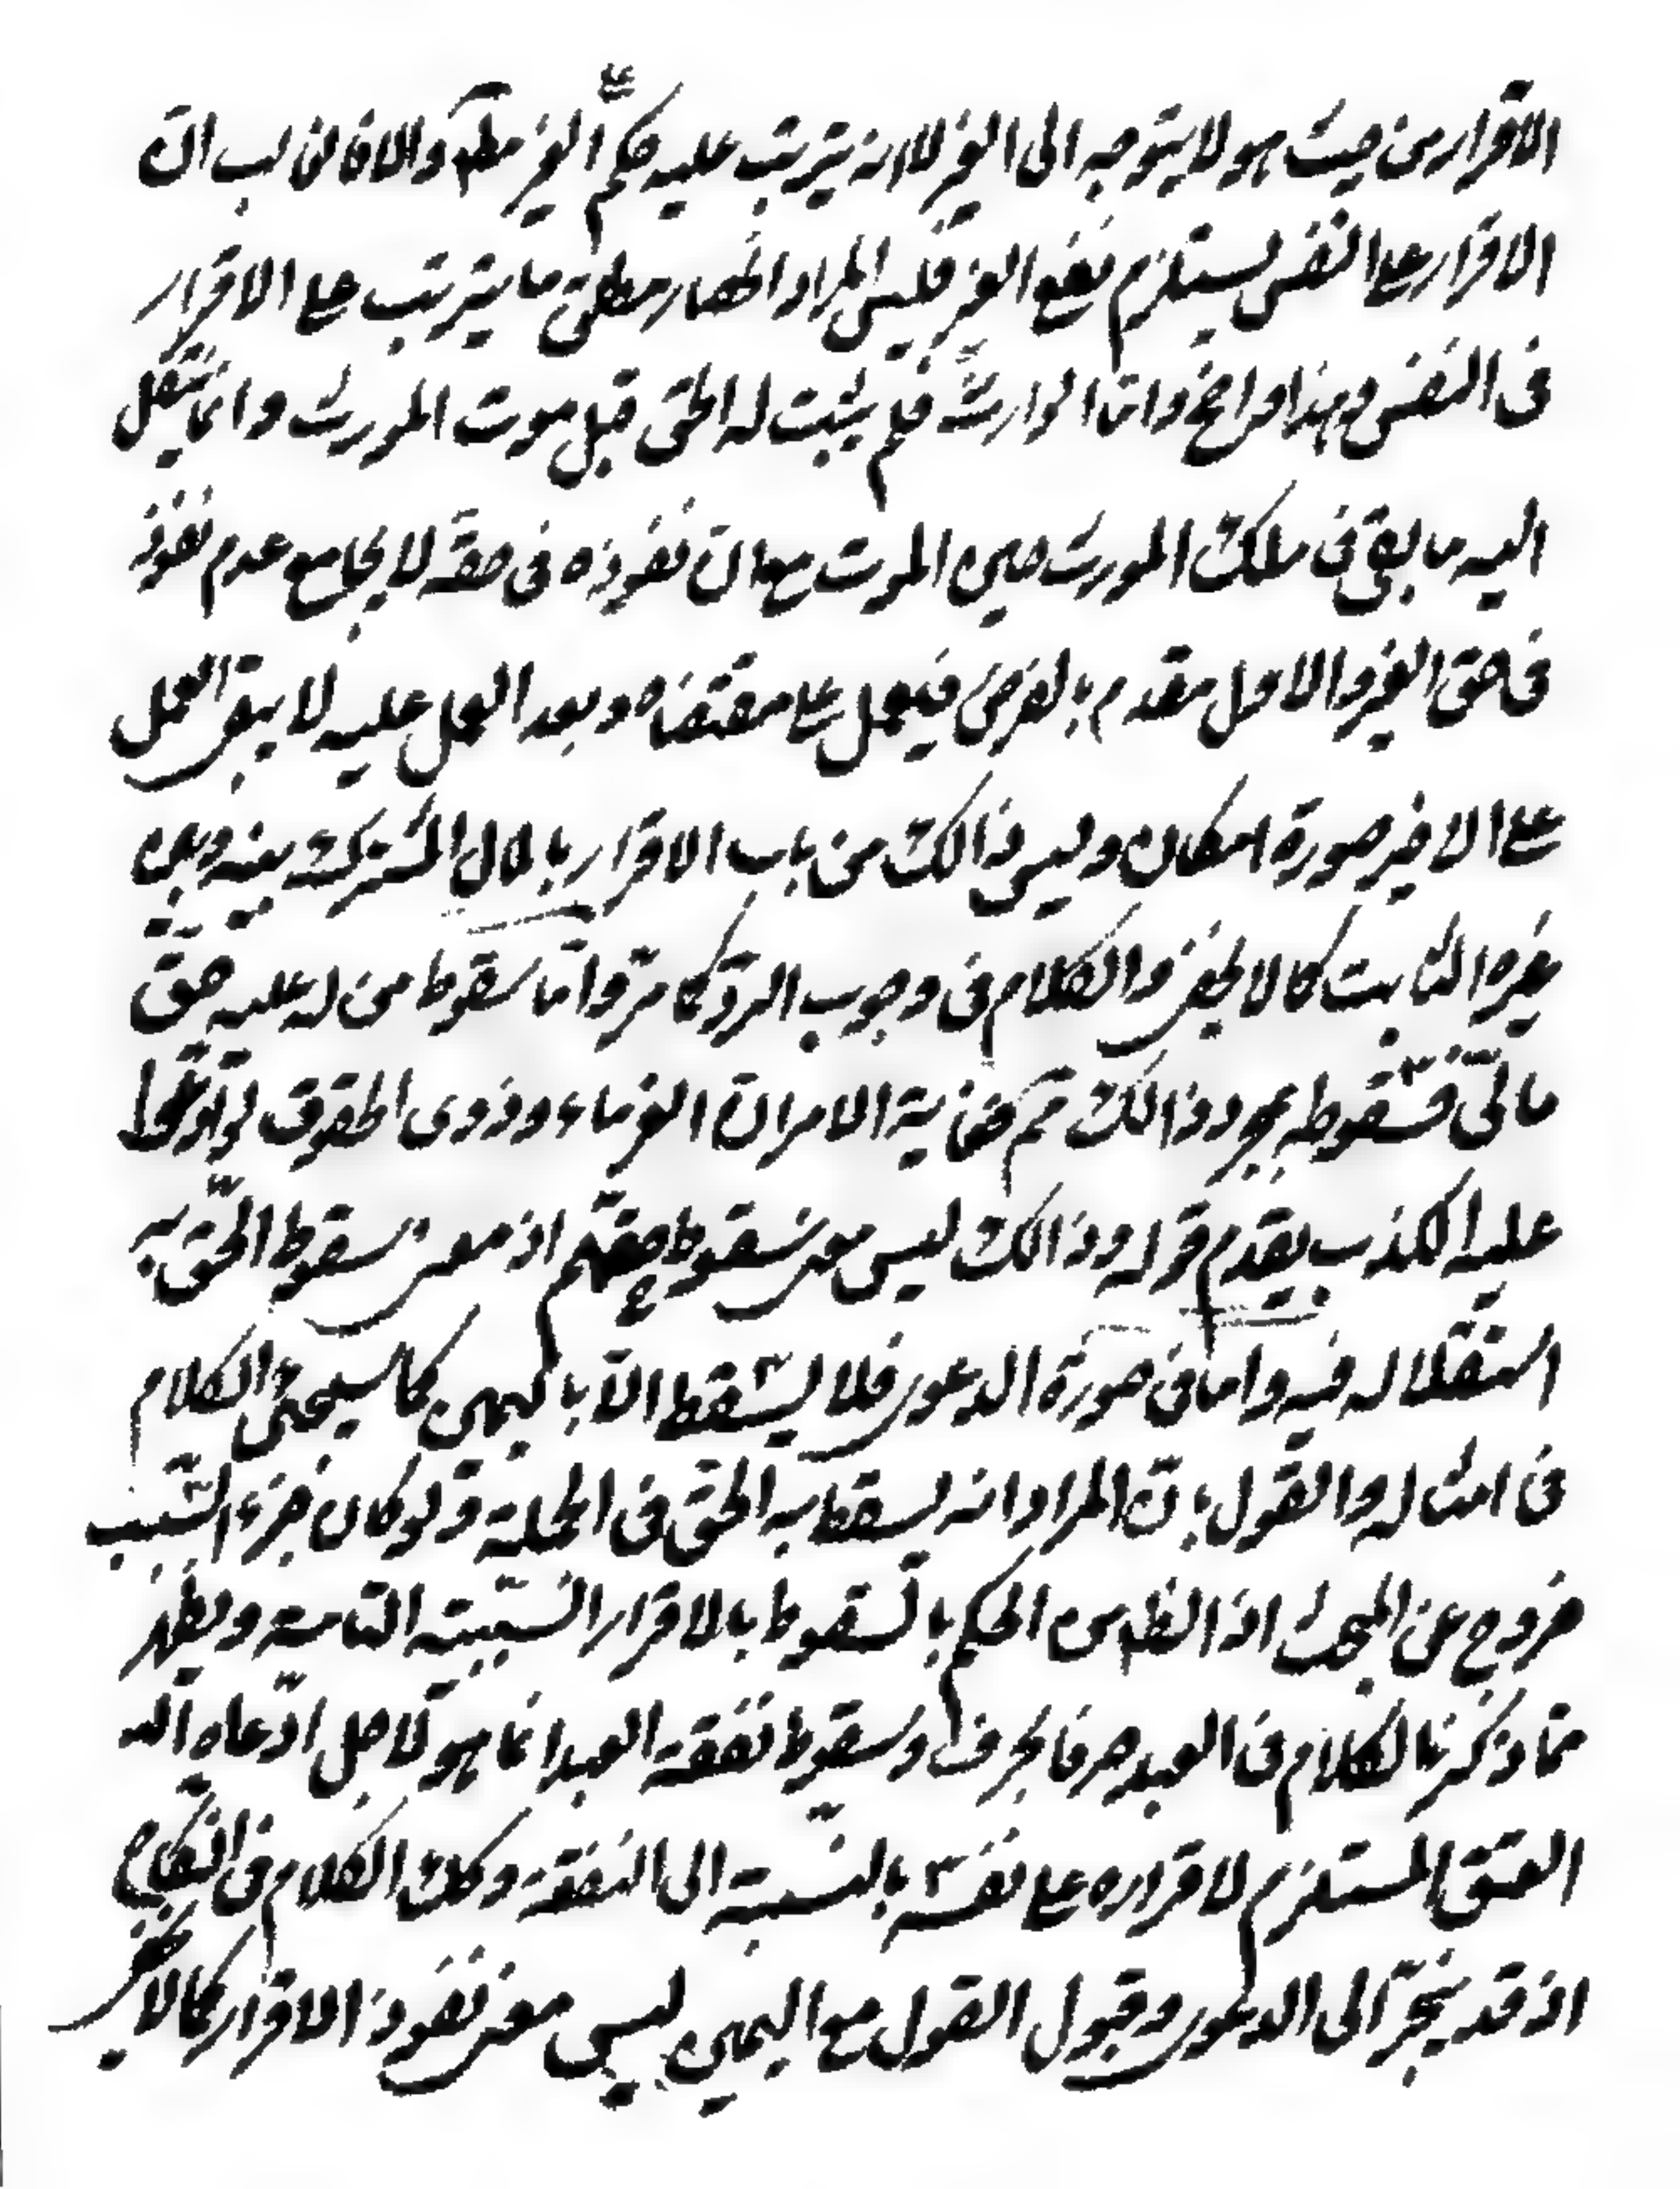 الاقرار من حيث هو لا يتوجه الى الغير لا انه يترتب عليه حكم على الغير مطلقا والا فالغالب ان
الاقرار على النفس يستلزم نفع الغير فليس المراد اظهار مطلق ما يترتب على الاقرار
فى النفس وهذا واضح واما الوارث فلم يثبت له الحق قبل موت المورث وانما ينتقل
اليه ما بقى فى ملك المورث حين الموت مع ان نفوذه فى حقه لا يجامع عدم نفوذ
فى حق الغير والاول مقدم بالفرض فيعمل على مقتضاه وبعد العمل عليه لا يبقى العمل
على الاخير صورة امكان وليس ذالك من باب الاقرار بالمال المشترك بينه وبين
غيره الثابت كما لا يخفى والكلام فى وجوب الرد كما مر واما سقوط من له عليه حق
مالى فسقوطه بمجرد ذالك ثم غاية الامر ان الغرماء وذوى الحقوق لو ادعوا
عليه الكذب يقدم قوله وذالك ليس معنى سقوط حقهم اذ معنى سقوط الحق به
استقلاله فيه واما فى صورة الدعوى فلا يسقط الا باليمين كما سيجئ الكلام
فى امثاله والقول بان المراد انه يسقط به الحق فى الجملة ولو كان جزء السبب
خروج عن المبحث اذ الظاهر من الحكم بالسقوط بالاقرار السببية التامة ويظهر
مما ذكرنا الكلام فى العبد حرفا بحرف وسقوط نفقة العبد انما هو لاجل ادعائه
العتق المستلزم لاقراره على نفسه بالنسبة الى النفقة وكك الكلام فى النكاح
اذ قد ينجر الى الدعوى وقبول القول مع اليمين ليس معنى نفوذ الاقرار كما لا يخفى